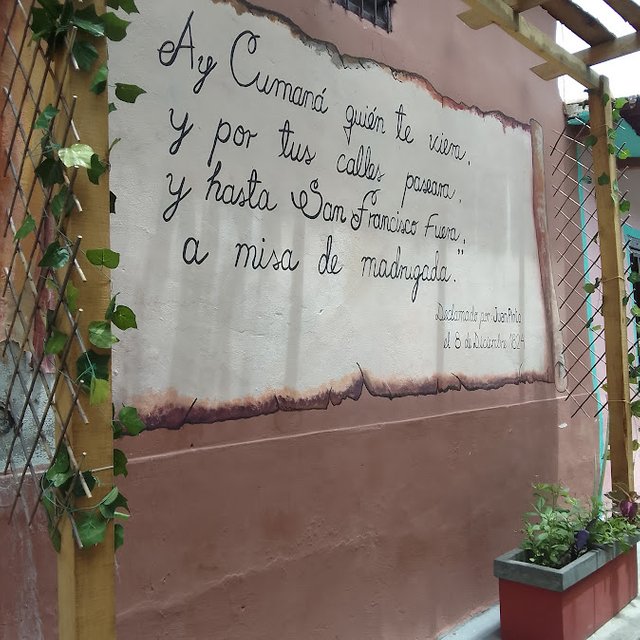 Ay Cumaná quién te viera,
y por tus calles paseara,
y hasta San Francisco fuera,
a misa de madrugada."
Declamado por Juan
el 8 de Diciembre